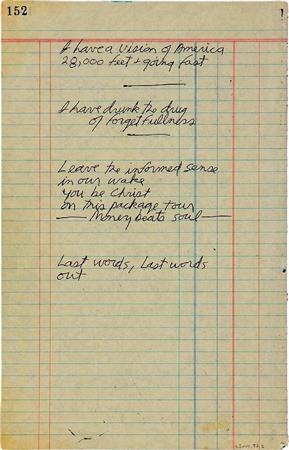 152
I have a Vision of America
28,000 feet & going fast
I have drunk the drug
of forgetfullness
Leave the informed sense
in our wake
you be Christ
on this package tour
— Money beats soul —
Last words, Last words
out